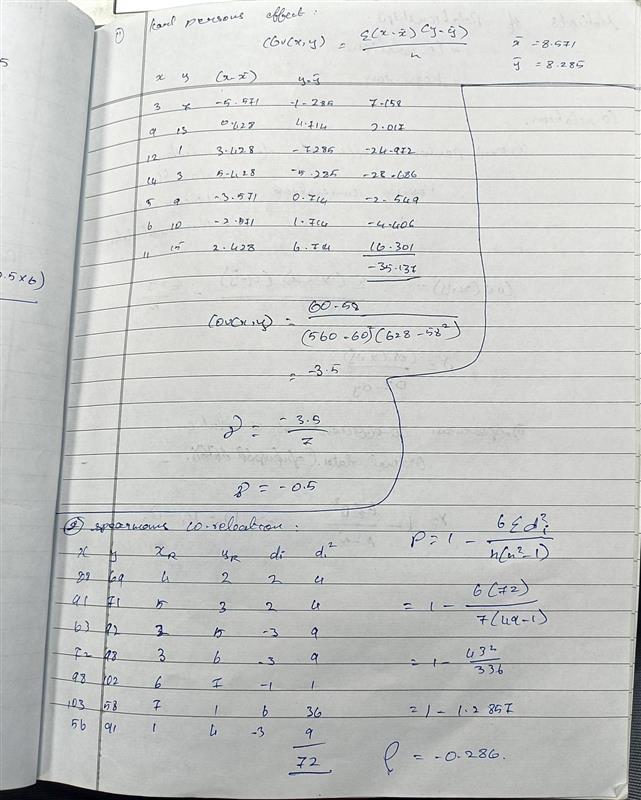 1) Karl persons effect :
Cov(x,y) = Σ(x-x̄)(y-ȳ) / n
x̄ = 8.571
ȳ = 8.285
x y (x-x̄) y-ȳ
3 7 -5.571 -1.285 7.158
9 13 0.428 4.714 2.017
12 1 3.428 -7.285 -24.972
14 3 5.428 -5.285 -28.686
5 9 -3.571 0.714 -2.549
6 10 -2.571 1.714 -4.406
11 15 2.428 6.714 16.301
-35.137
Cov(x,y) = 60.58 / (560-60)²(628-58²)
= -3.5
= -3.5 / 7
= -0.5
0.5×6)
2) Spearmans co-relation :
x y xR yR di di²
88 69 4 2 2 4
91 71 5 3 2 4
63 92 2 5 -3 9
72 98 3 6 -3 9
98 102 6 7 -1 1
103 58 7 1 6 36
56 91 1 4 -3 9
72
P = 1 - 6Σdi² / n(n²-1)
= 1 - 6(72) / 7(49-1)
= 1 - 432 / 336
= 1 - 1.2857
ρ = -0.286.